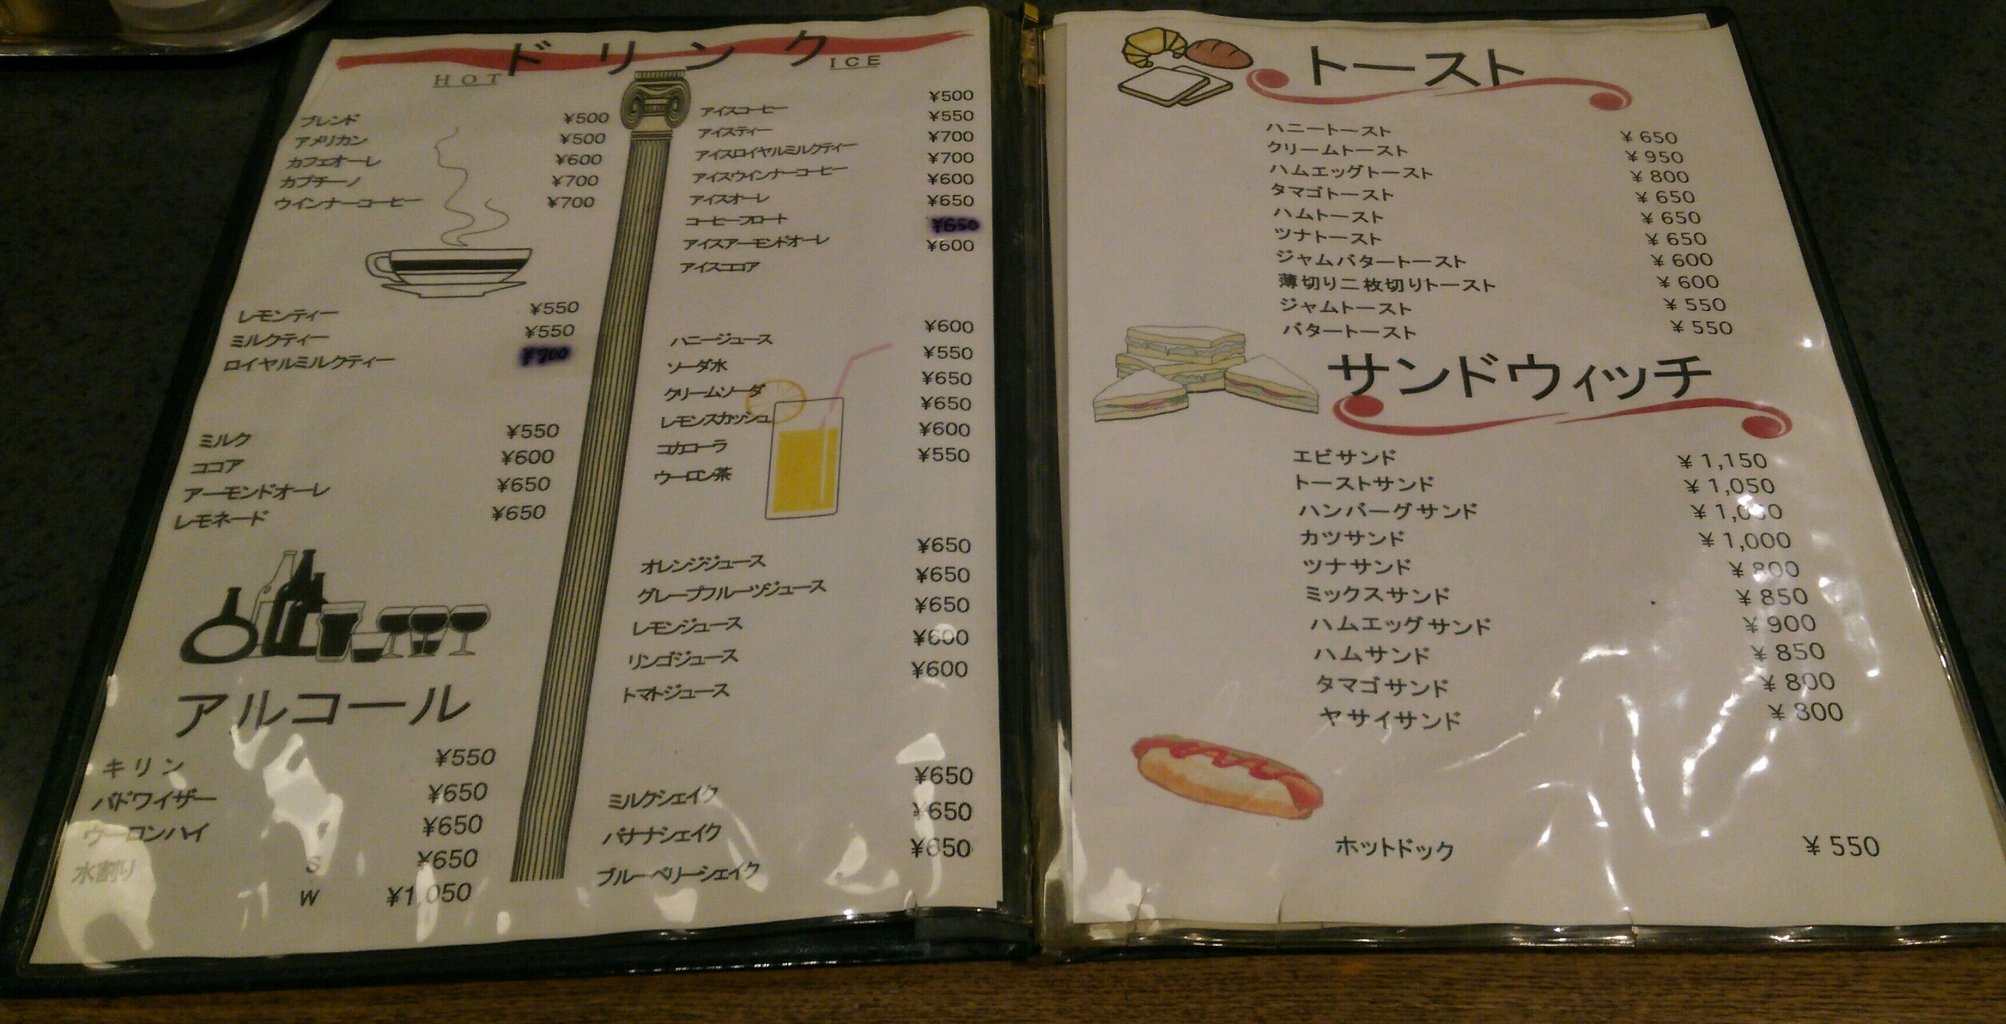 ドリンク
HOT
ブレンド ¥500
アメリカン ¥500
カフェオーレ ¥600
カプチーノ ¥700
ウインナーコーヒー ¥700
レモンティー ¥550
ミルクティー ¥550
ロイヤルミルクティー ¥700
ミルク ¥550
ココア ¥600
アーモンドオーレ ¥650
レモネード ¥650
アルコール
キリン ¥550
バドワイザー ¥650
ウーロンハイ ¥650
水割り S ¥650
W ¥1,050
ICE
アイスコーヒー ¥500
アイスティー ¥550
アイスロイヤルミルクティー ¥700
アイスウインナーコーヒー ¥700
アイスオーレ ¥600
コーヒーフロート ¥650
アイスアーモンドオーレ ¥650
アイスココア ¥600
ハニージュース ¥600
ソーダ水 ¥550
クリームソーダ ¥650
レモンスカッシュ ¥650
コカコーラ ¥600
ウーロン茶 ¥550
オレンジジュース ¥650
グレープフルーツジュース ¥650
レモンジュース ¥650
リンゴジュース ¥600
トマトジュース ¥600
ミルクシェイク ¥650
バナナシェイク ¥650
ブルーベリーシェイク ¥650
トースト
ハニートースト ¥650
クリームトースト ¥950
ハムエッグトースト ¥800
タマゴトースト ¥650
ハムトースト ¥650
ツナトースト ¥650
ジャムバタートースト ¥600
薄切り二枚切りトースト ¥600
ジャムトースト ¥550
バタートースト ¥550
サンドウィッチ
エビサンド ¥1,150
トーストサンド ¥1,050
ハンバーグサンド
カツサンド ¥1,000
ツナサンド ¥800
ミックスサンド ¥850
ハムエッグサンド ¥900
ハムサンド ¥850
タマゴサンド ¥800
ヤサイサンド ¥800
ホットドック ¥550